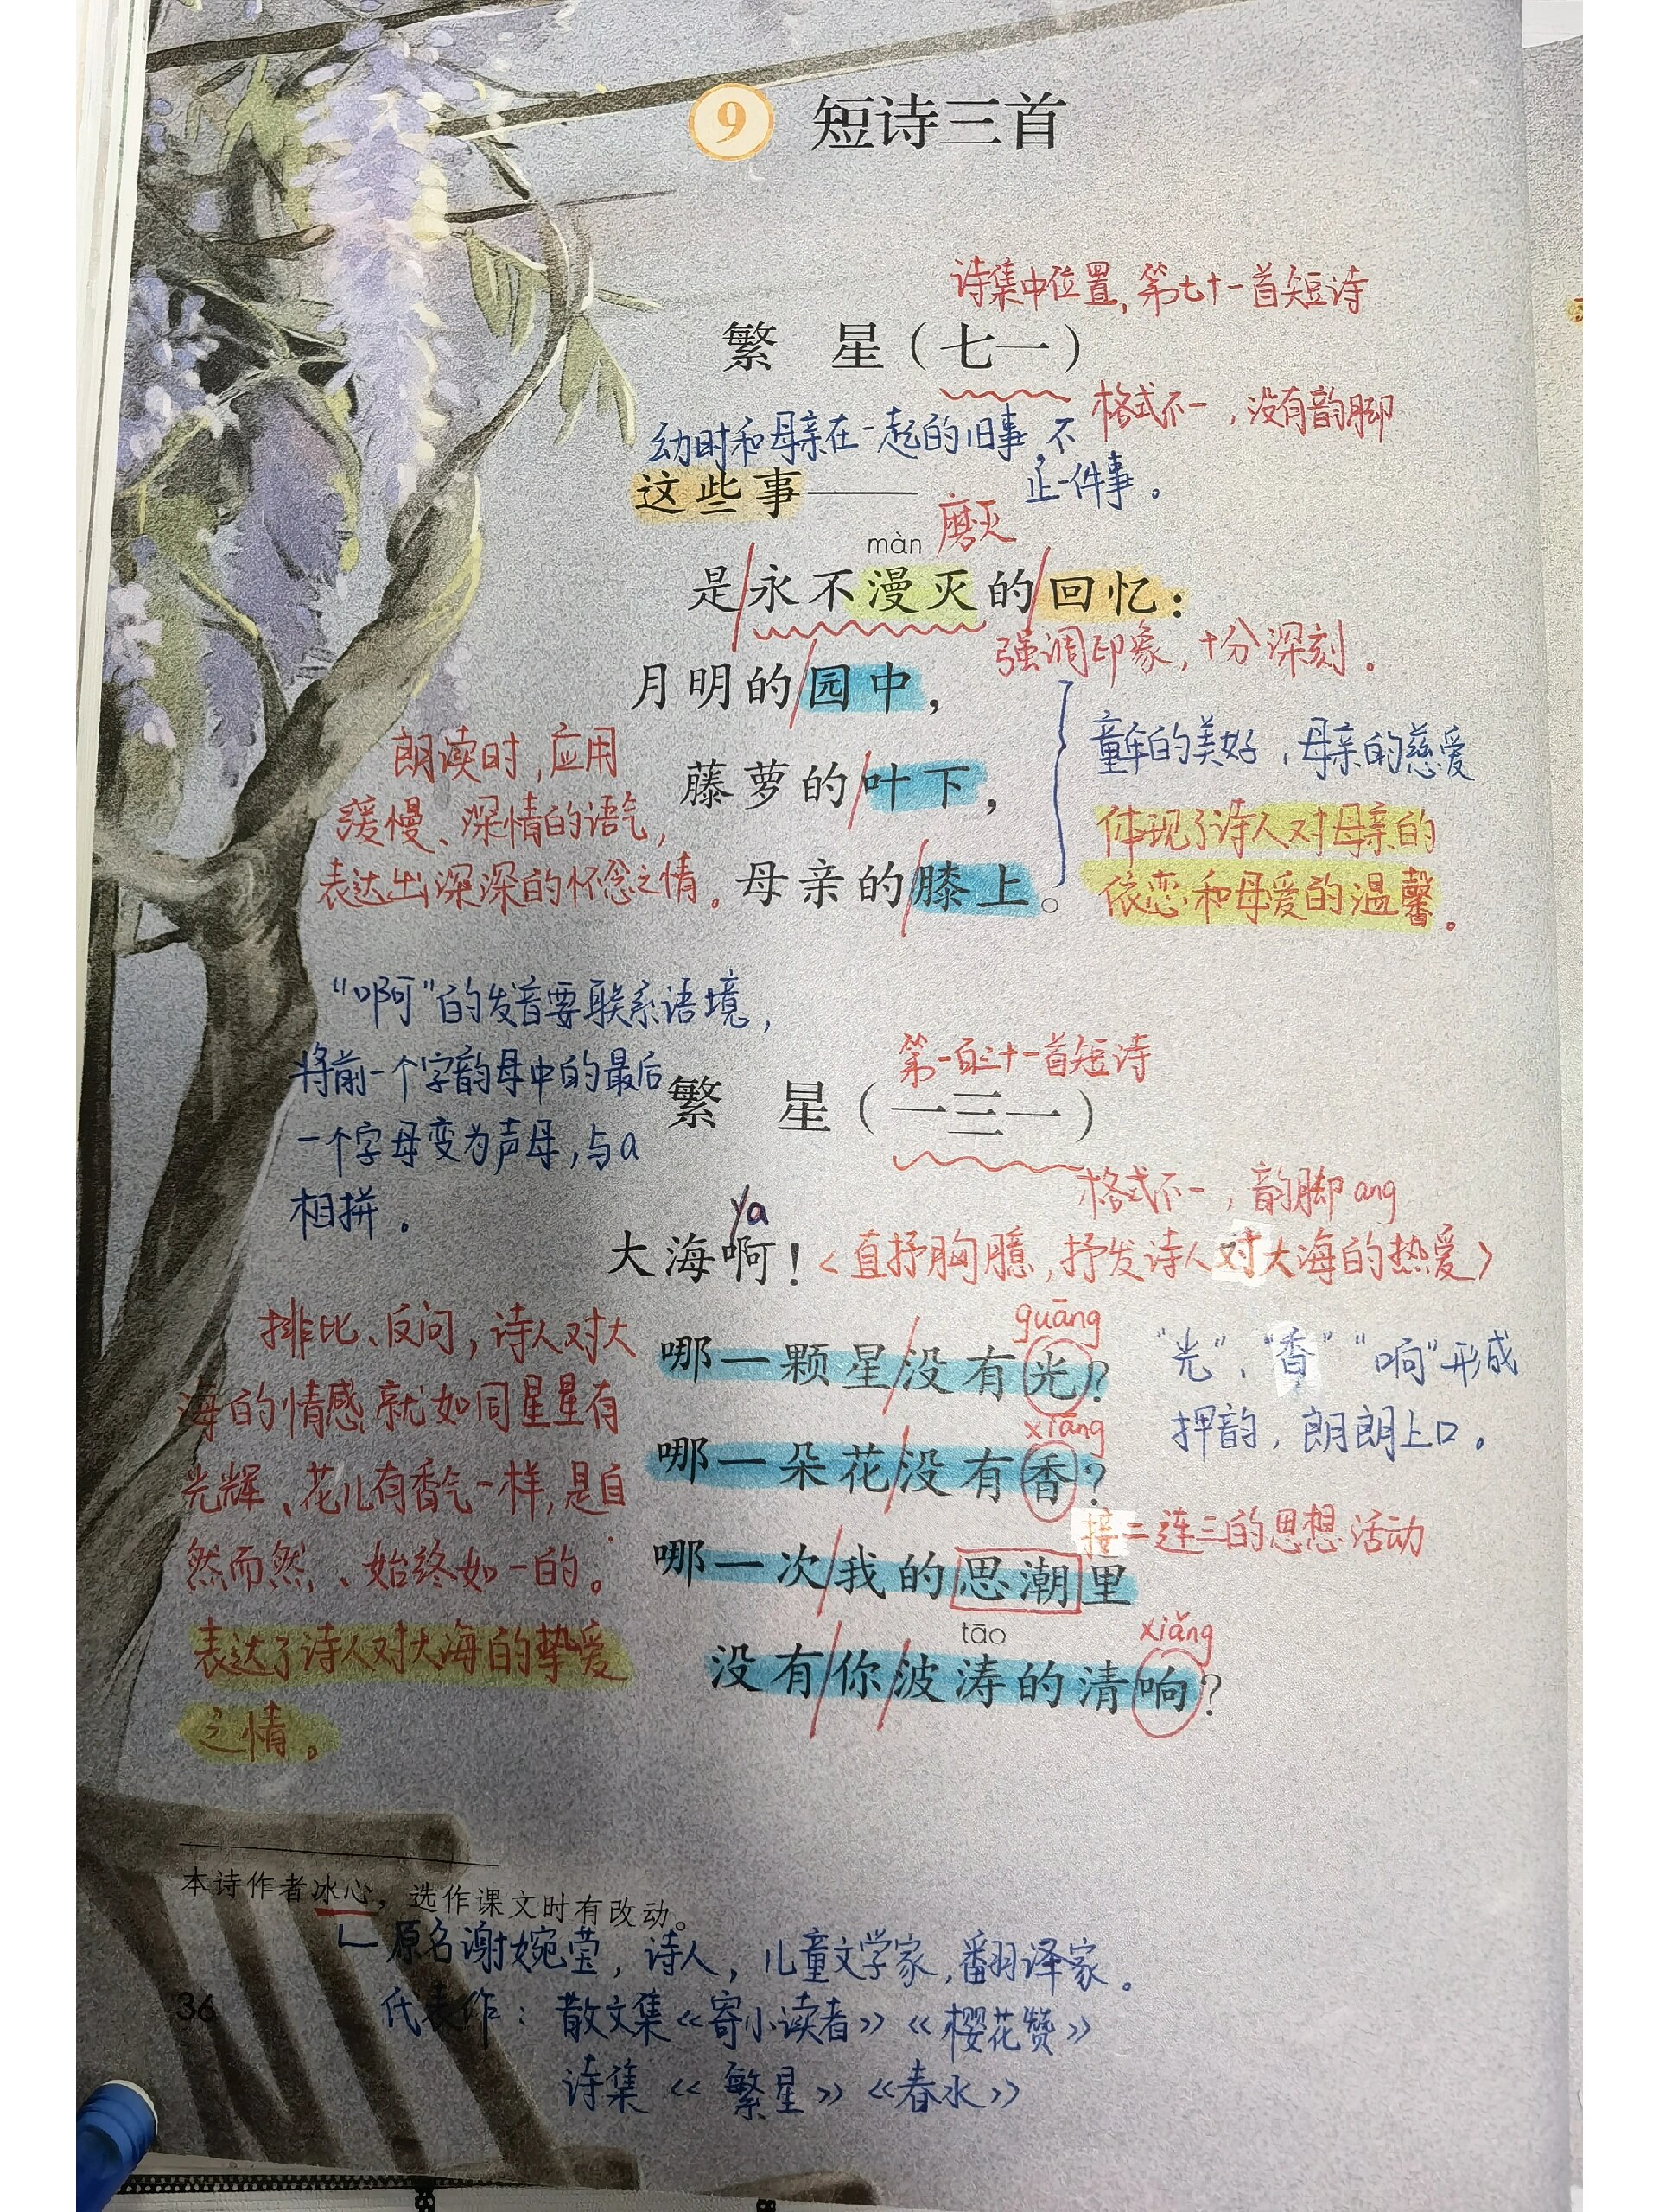 9 短诗三首
诗集中位置,第七十一首短诗
繁 星（七一）
格式不一,没有韵脚
幼时和母亲在一起的旧事,不
止一件事。
这些事——
màn 磨灭
是永不漫灭的回忆：
强调印象,十分深刻。
月明的园中，
藤萝的叶下，
母亲的膝上。
童年的美好,母亲的慈爱
体现了诗人对母亲的
依恋和母爱的温馨。
朗读时,应用
缓慢、深情的语气,
表达出深深的怀念之情。
“啊”的发音要联系语境,
将前一个字韵母中的最后
一个字母变为声母,与a
相拼。
第一百三十一首短诗
繁 星（一三一）
格式不一,韵脚ang
ya
大海啊！<直抒胸臆,抒发诗人对大海的热爱>
guāng
哪一颗星没有光？
xiāng
哪一朵花没有香？
接二连三的思想活动
哪一次我的思潮里
tāo xiǎng
没有你波涛的清响？
“光”、“香”“响”形成
押韵,朗朗上口。
排比、反问,诗人对大
海的情感就如同星星有
光辉、花儿有香气一样,是自
然而然、始终如一的。
表达了诗人对大海的挚爱
之情。
本诗作者冰心，选作课文时有改动。
原名谢婉莹,诗人,儿童文学家,翻译家。
36
代表作：散文集《寄小读者》《樱花赞》
诗集《繁星》《春水》